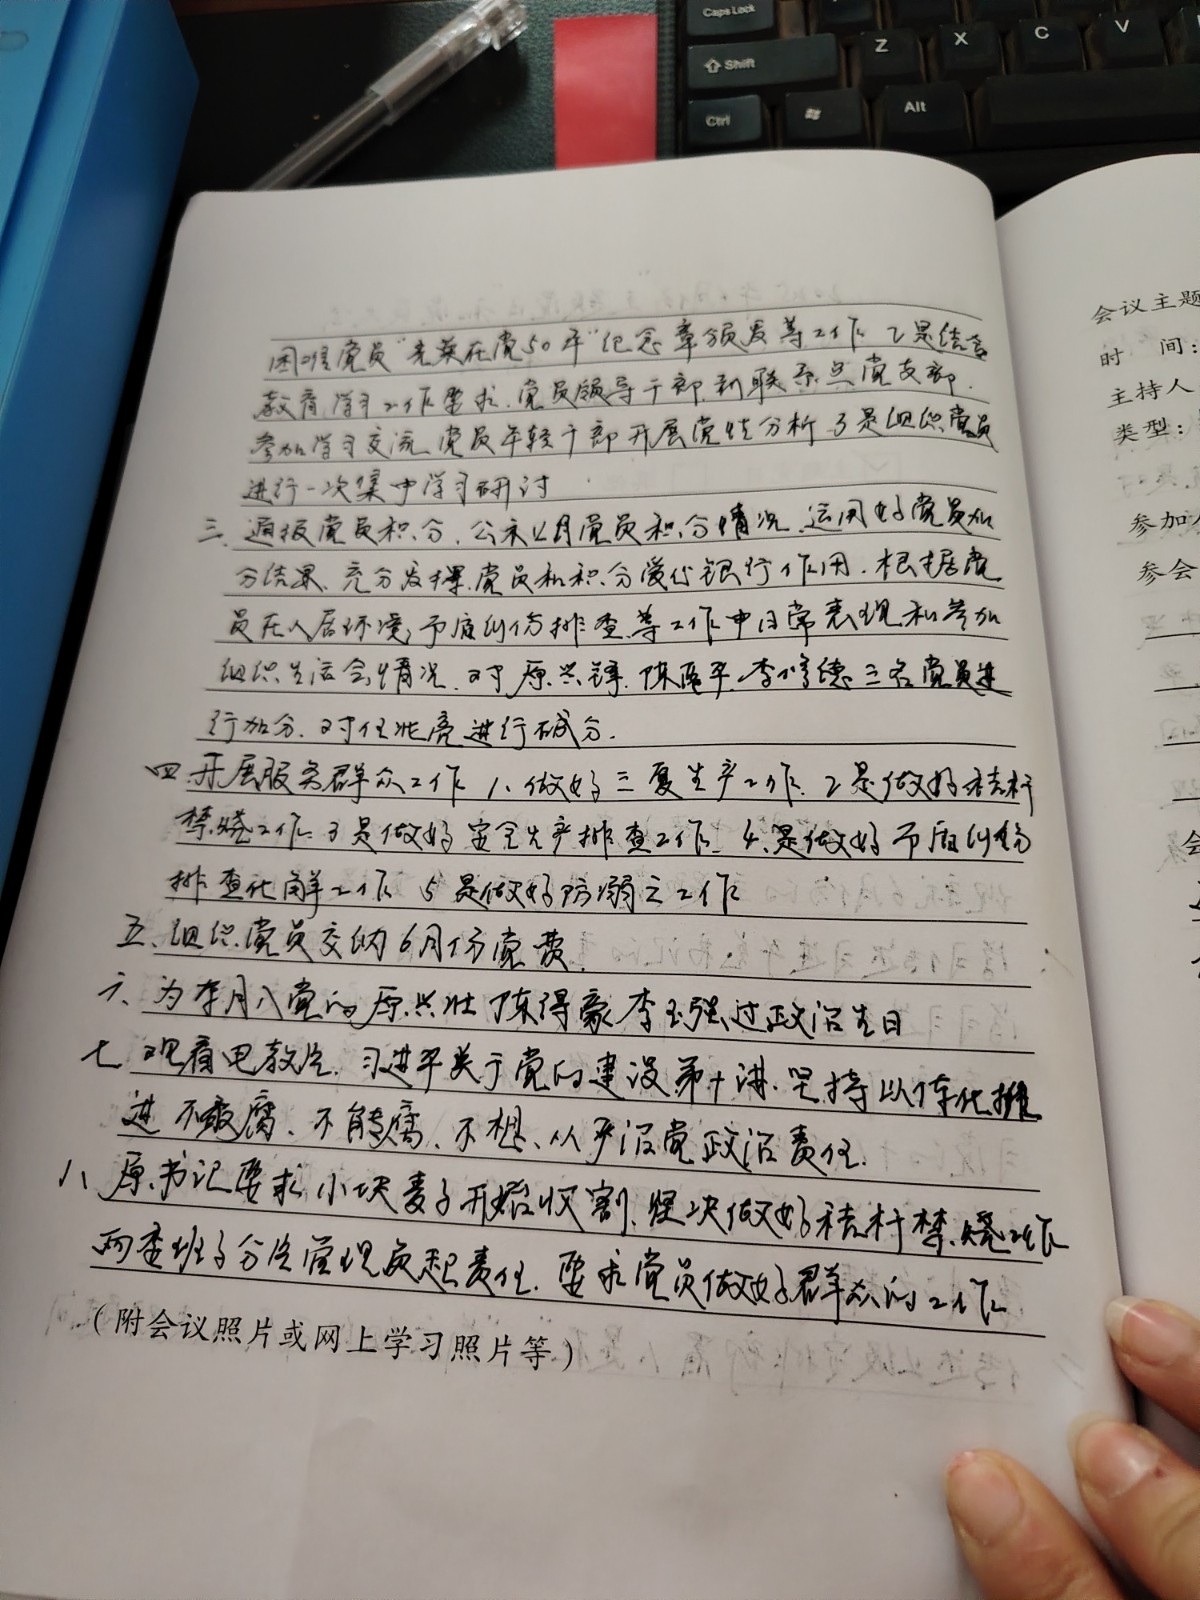 Caps Lock
Shift
Z
X
C
V
Ctrl
Alt
困难党员"光荣在党50年"纪念章颁发等工作 2是结合
教育学习工作要求、党员领导干部到联系点党支部、
参加学习交流、党员年轻干部开展党性分析 3是组织党员
进行一次集中学习研讨
三、通报党员积分、公示 月党员积分情况、运用好党员加
分结果、充分发挥党员和积分爱心银行作用、根据党
员在人居环境、矛盾纠纷排查等工作中日常表现和参加
组织生活会情况、对原兴锋、陈 平、李修德三名党员进
行加分、对任兆亮进行减分.
四、开展服务群众工作 1、做好三夏生产工作、2是做好秸杆
禁烧工作 3是做好安全生产排查工作、4、是做好矛盾纠纷
排查化解工作 5是做好防溺亡工作
五、组织党员交纳6月份党费、
六、为本月入党的原兴壮 陈得豪 李玉强过政治生日
七、观看电教片、习进平关于党的建设第十讲、坚持以体化推
进不敢腐、不能腐、不想、从严治党政治责任.
八、原书记要求小块麦子开始收割、坚决做好秸杆禁烧工作
两委班子分片管理负起责任、要求党员做好群众的工作
(附会议照片或网上学习照片等)
会议主题
时 间:
主持人
类型:
参加人
参会
会